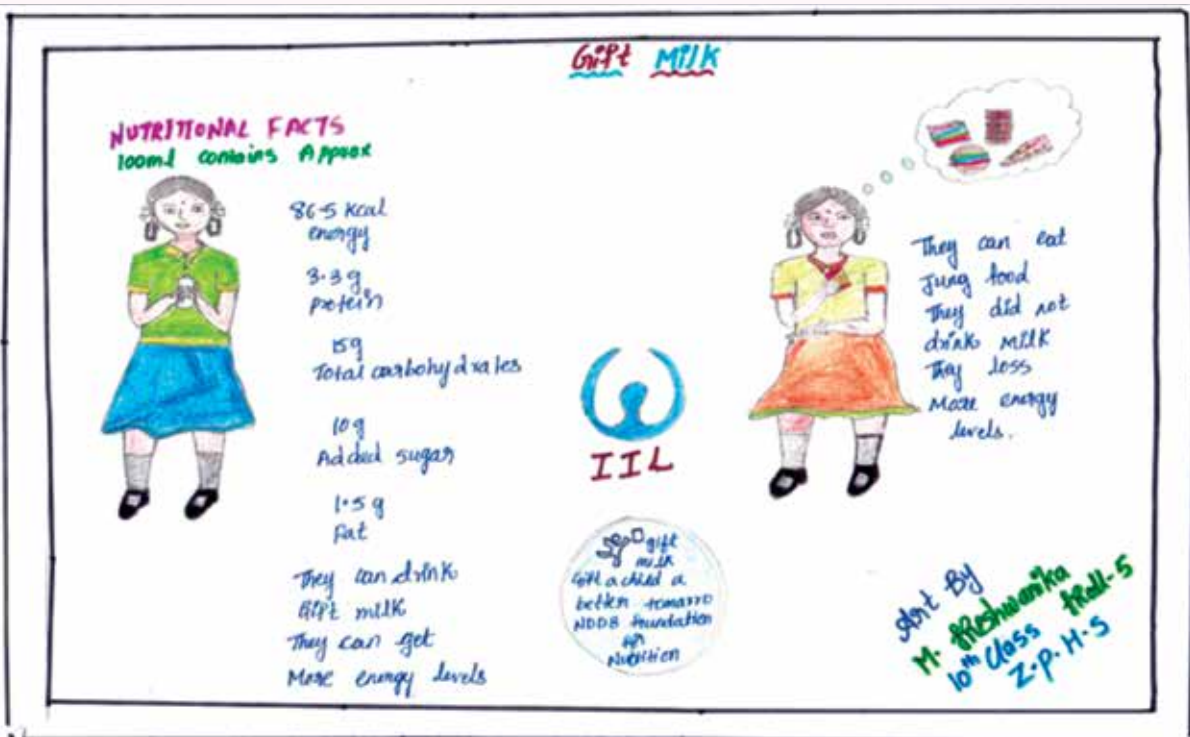 Gift Milk
NUTRITIONAL FACTS
100ml contains Approx
86.5 Kcal
energy
3.3g
protein
15g
Total carbohydrates
10g
Added sugar
1.5g
Fat
They can drink
Gift milk
They can get
More energy levels
IIL
gift
milk
Gift a child a
better tomarro
NDDB foundation
for
Nutrition
They can eat
Jung food
They did not
drink milk
They loss
More energy
levels.
Art By
M. Roll-5
10th Class
Z.p.H.S